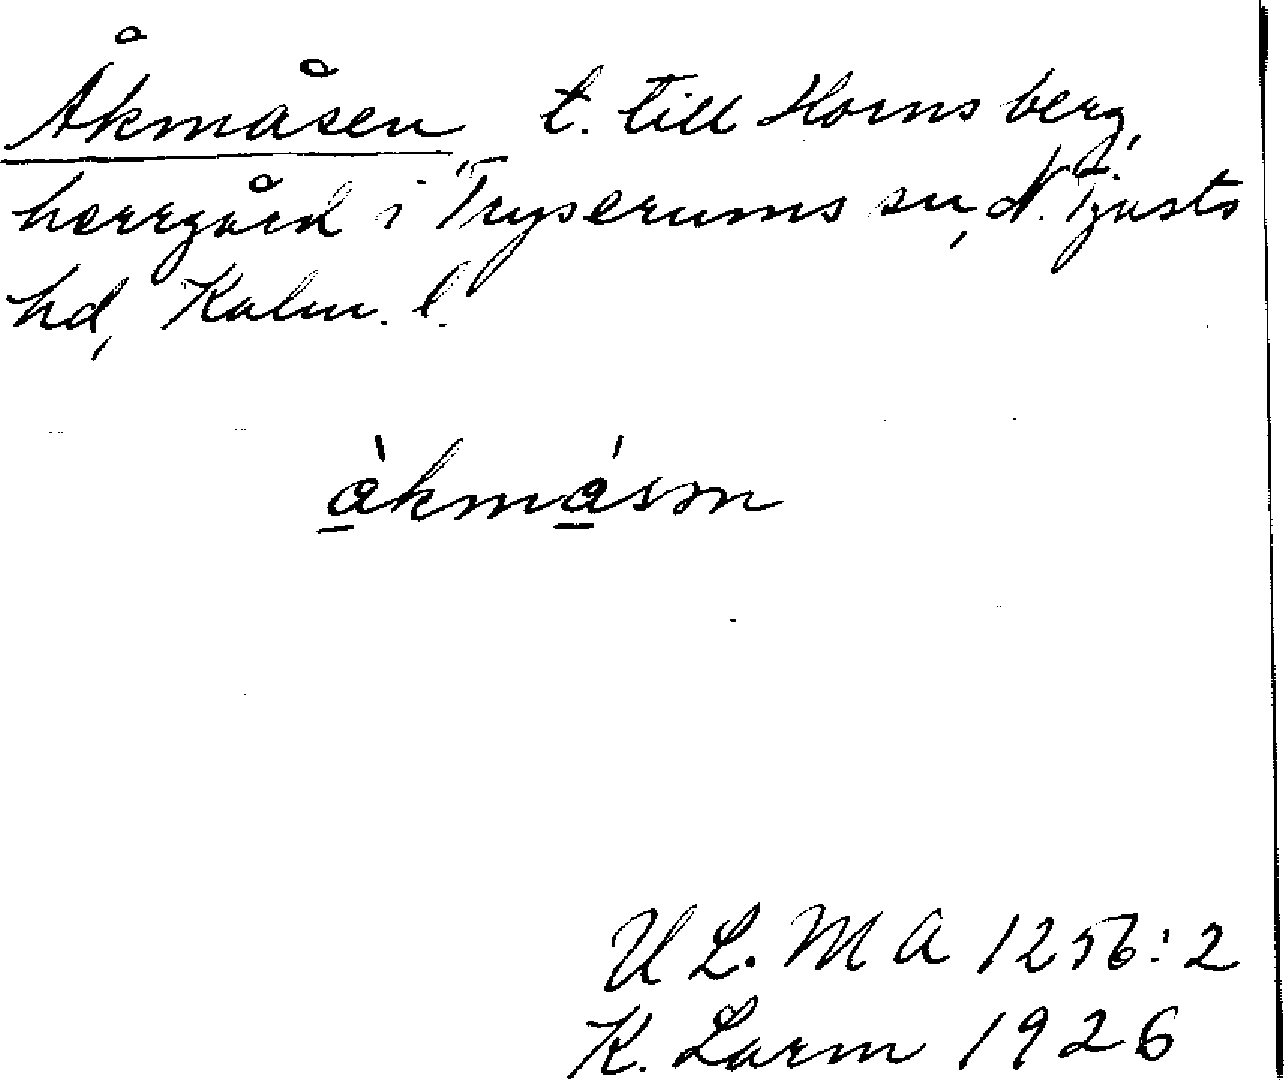 Åkmåsen, t. till Hornsberg,
herrgård i Tryserums sn, N. Tjusts
hd, Kalm. l.
a̲̍kma̲̍sm
U L. M A 1256:2
K. Larm 1926